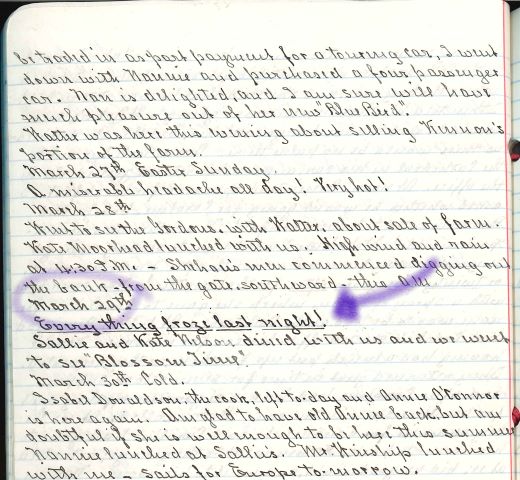 be traded in as part payment for a touring car, I went
down with Nannie and purchased a four passenger
car. Nan is delighted, and I am sure will have
much pleasure out of her new "Blue Bird".
Walter was here this evening about selling Vernon's
portion of the farm.
March 27th Easter Sunday.
A miserable headache all day! Very hot!
March 28th
Went to see the Gordons, with Walter, about sale of farm.
Kate Moorhead lunched with us. High wind and rain
at 4:30 P.M. - Shehan's men commenced digging out
the bank - from the gate, southward - this a.m.
March 29th
Every thing froze last night!
Sallie and Kate Nelson dined with us and we went
to see "Blossom Time".
March 30th Cold.
Isabel Donaldson, the cook, left to-day and Annie O'Connor
is here again. Am glad to have old Annie back, but am
doubtful if she is well enough to be here this summer
Nannie lunched at Sallie's. Mr. Winship lunched
with me - sails for Europe to-morrow.